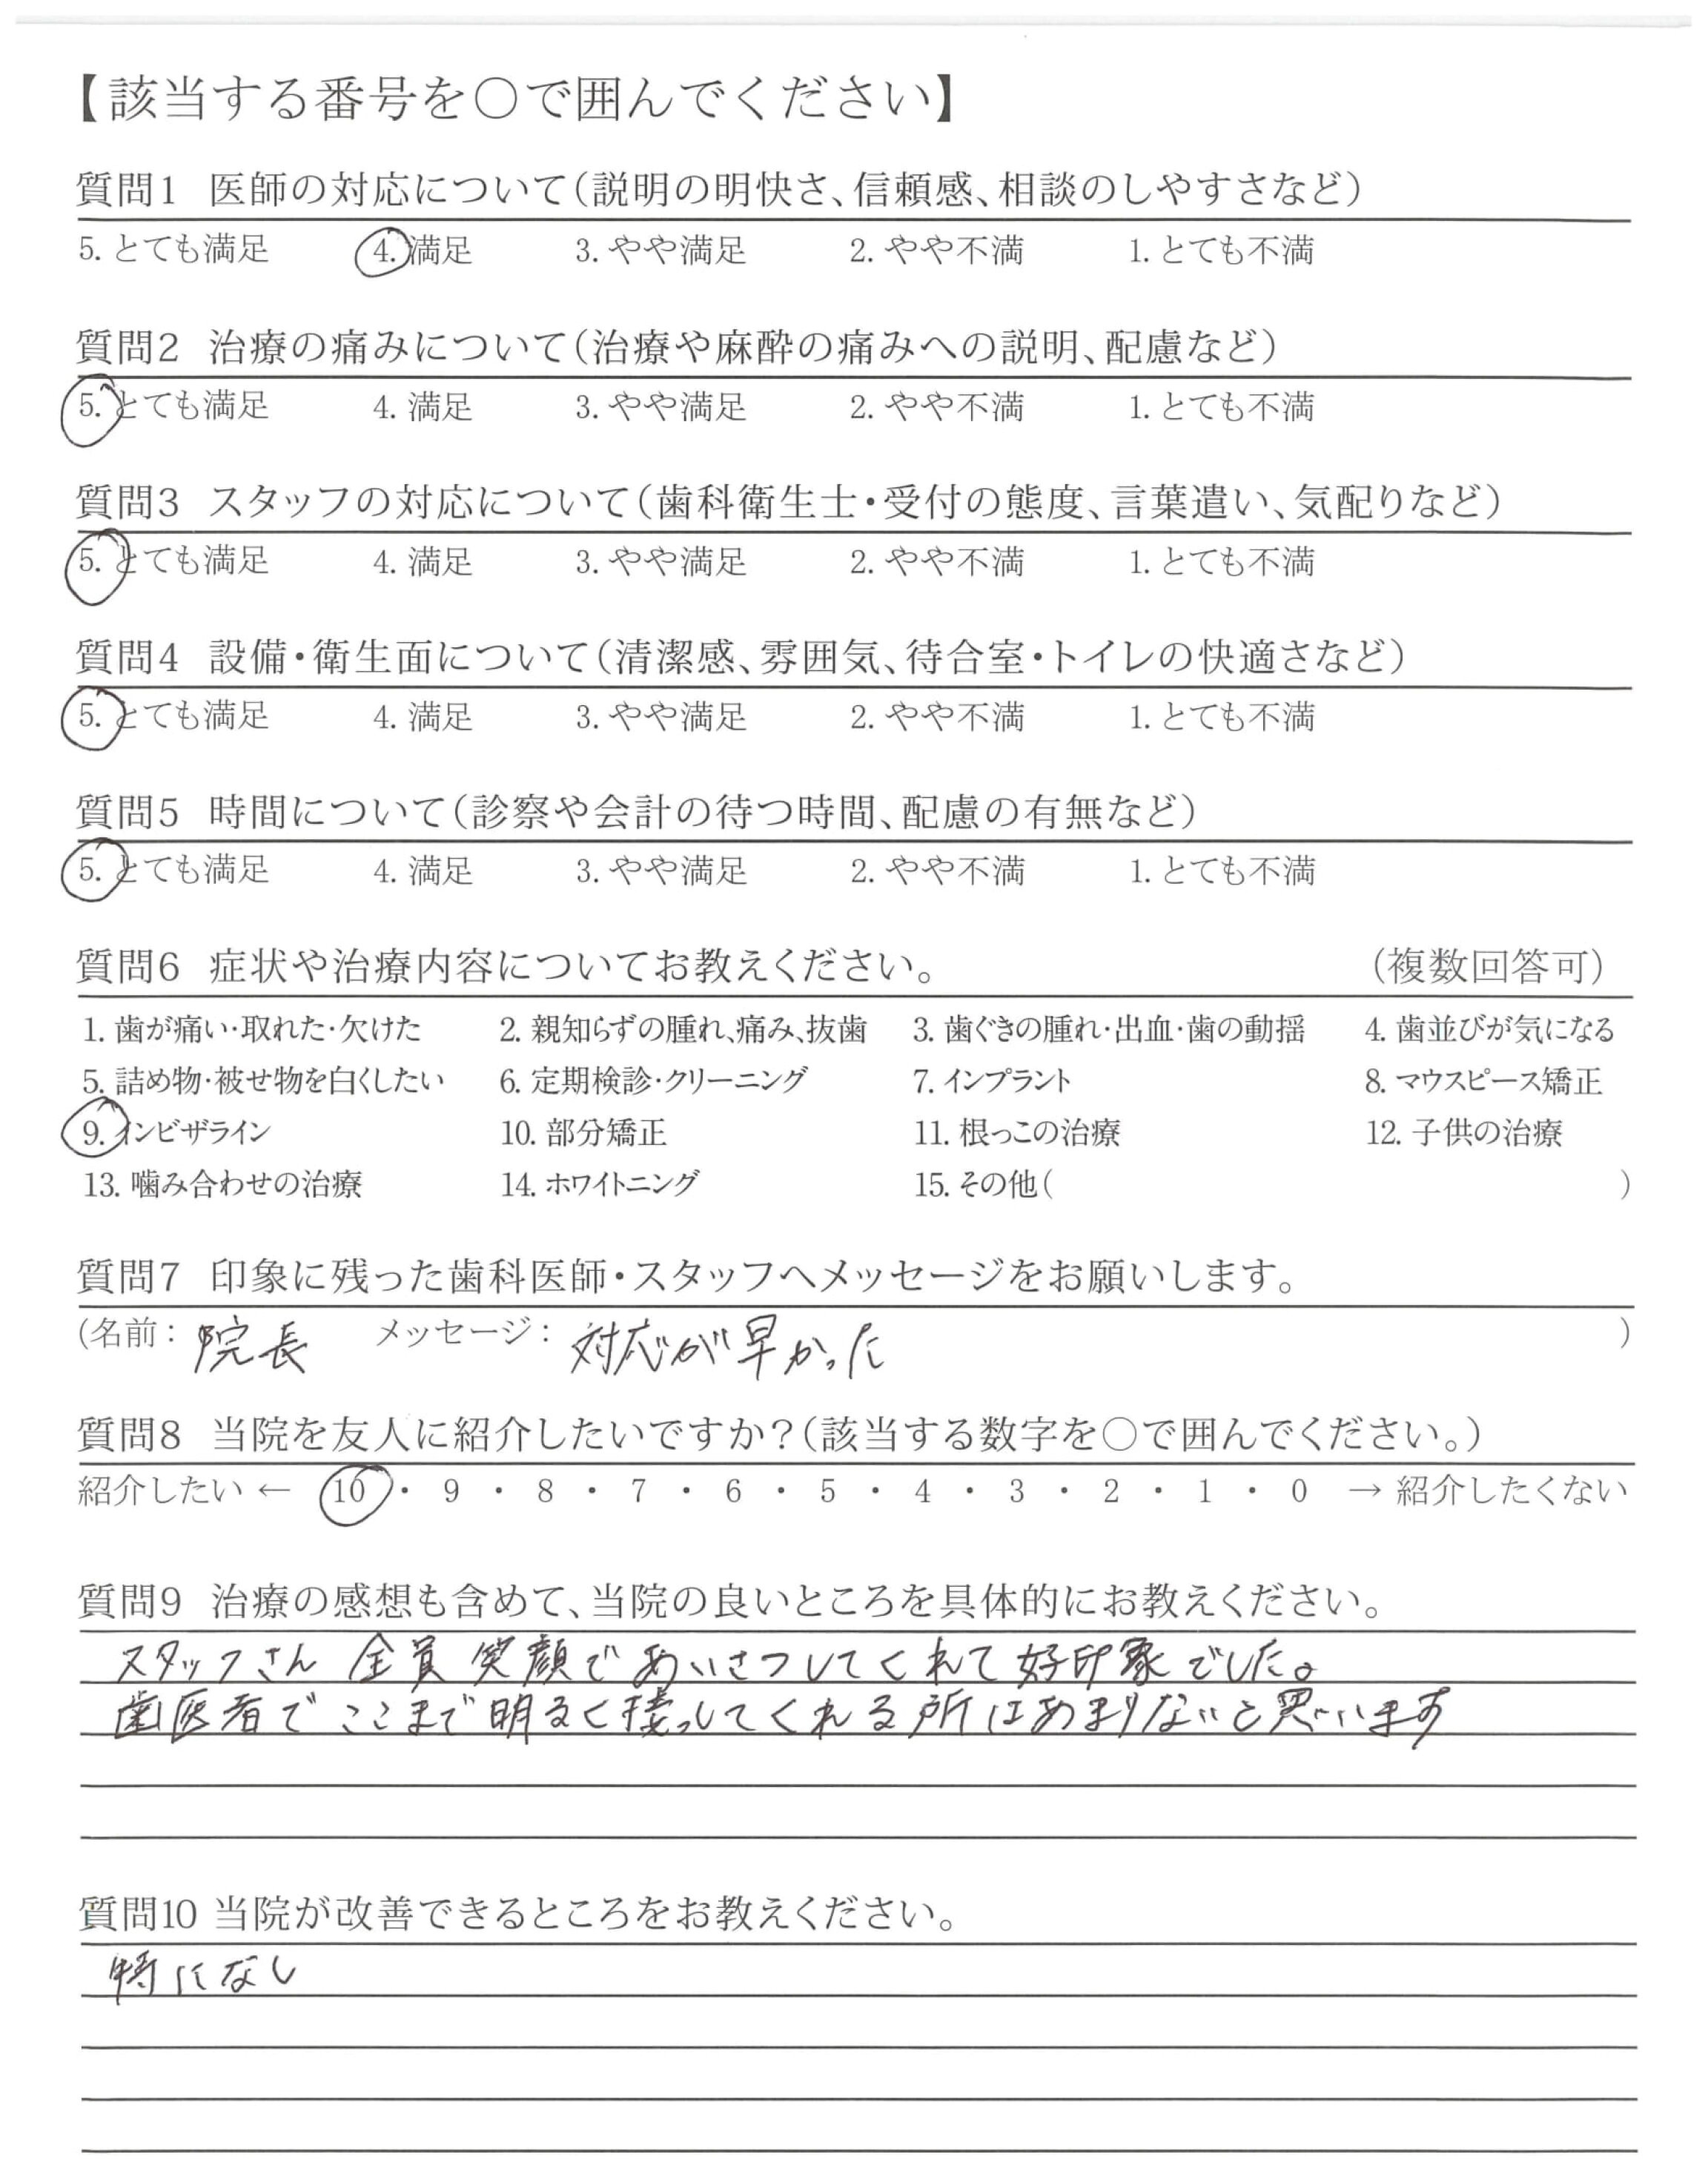 【該当する番号を○で囲んでください】
質問1 医師の対応について(説明の明快さ、信頼感、相談のしやすさなど)
5. とても満足 4. 満足 3. やや満足 2. やや不満 1. とても不満
質問2 治療の痛みについて(治療や麻酔の痛みへの説明、配慮など)
5. とても満足 4. 満足 3. やや満足 2. やや不満 1. とても不満
質問3 スタッフの対応について(歯科衛生士・受付の態度、言葉遣い、気配りなど)
5. とても満足 4. 満足 3. やや満足 2. やや不満 1. とても不満
質問4 設備・衛生面について(清潔感、雰囲気、待合室・トイレの快適さなど)
5. とても満足 4. 満足 3. やや満足 2. やや不満 1. とても不満
質問5 時間について(診察や会計の待つ時間、配慮の有無など)
5. とても満足 4. 満足 3. やや満足 2. やや不満 1. とても不満
質問6 症状や治療内容についてお教えください。 (複数回答可)
1. 歯が痛い・取れた・欠けた 2. 親知らずの腫れ、痛み、抜歯 3. 歯ぐきの腫れ・出血・歯の動揺 4. 歯並びが気になる
5. 詰め物・被せ物を白くしたい 6. 定期検診・クリーニング 7. インプラント 8. マウスピース矯正
9. インビザライン 10. 部分矯正 11. 根っこの治療 12. 子供の治療
13. 噛み合わせの治療 14. ホワイトニング 15. その他( )
質問7 印象に残った歯科医師・スタッフへメッセージをお願いします。
(名前: 院長 メッセージ: 対応が早かった )
質問8 当院を友人に紹介したいですか?(該当する数字を○で囲んでください。)
紹介したい ← 10 ・ 9 ・ 8 ・ 7 ・ 6 ・ 5 ・ 4 ・ 3 ・ 2 ・ 1 ・ 0 → 紹介したくない
質問9 治療の感想も含めて、当院の良いところを具体的にお教えください。
スタッフさん 全員 笑顔で あいさつしてくれて 好印象でした。
歯医者で ここまで 明るく接っしてくれる所はあまりないと思います
質問10 当院が改善できるところをお教えください。
特になし